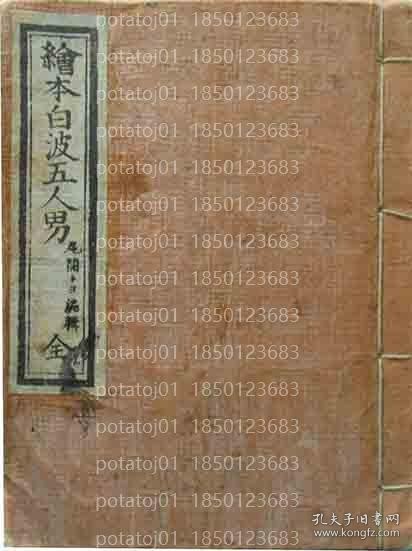 繪本白波五人男
尾関トヨ編輯
全
potatoj01 1850123683
potatoj01 1850123683
potatoj01 1850123683
potatoj01 1850123683
potatoj01 1850123683
potatoj01 1850123683
potatoj01 1850123683
potatoj01 1850123683
potatoj01 1850123683
potatoj01 1850123683
potatoj01 1850123683
potatoj01 1850123683
potatoj01 1850123683
potatoj01 1850123683
potatoj01 1850123683
potatoj01 1850123683
potatoj01 1850123683
potatoj01 1850123683
孔夫子旧书网
www.kongfz.com